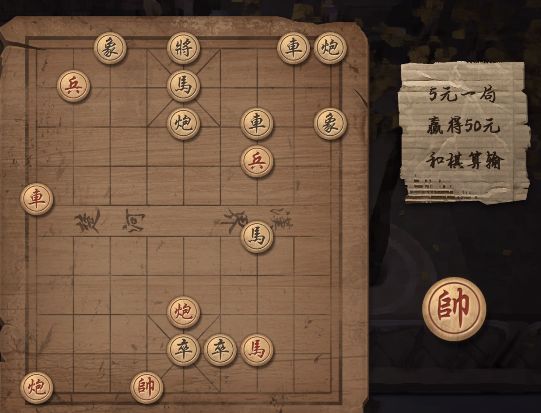 象 將 車 炮
兵 馬
炮 車 象
兵
車
楚 河 界 漢
馬
炮
卒 卒 馬
炮 帥
5元一局
赢得50元
和棋算输
帥